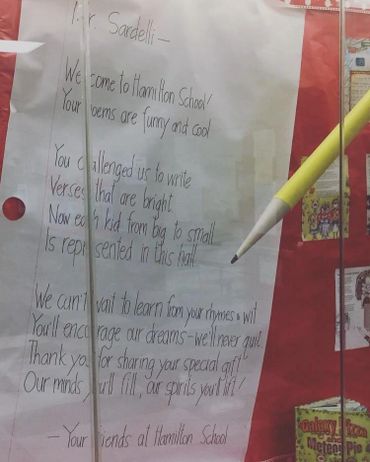 Mr. Sardelli—
Welcome to Hamilton School!
Your poems are funny and cool
You challenged us to write
Verses that are bright.
Now each kid from big to small
Is represented in this hall.
We can't wait to learn from your rhymes & wit
You'll encourage our dreams—we'll never quit.
Thank you for sharing your special gift
Our minds you'll fill, our spirits you'll lift!
—Your friends at Hamilton School
Galaxy Pizza
and
Meteor Pie